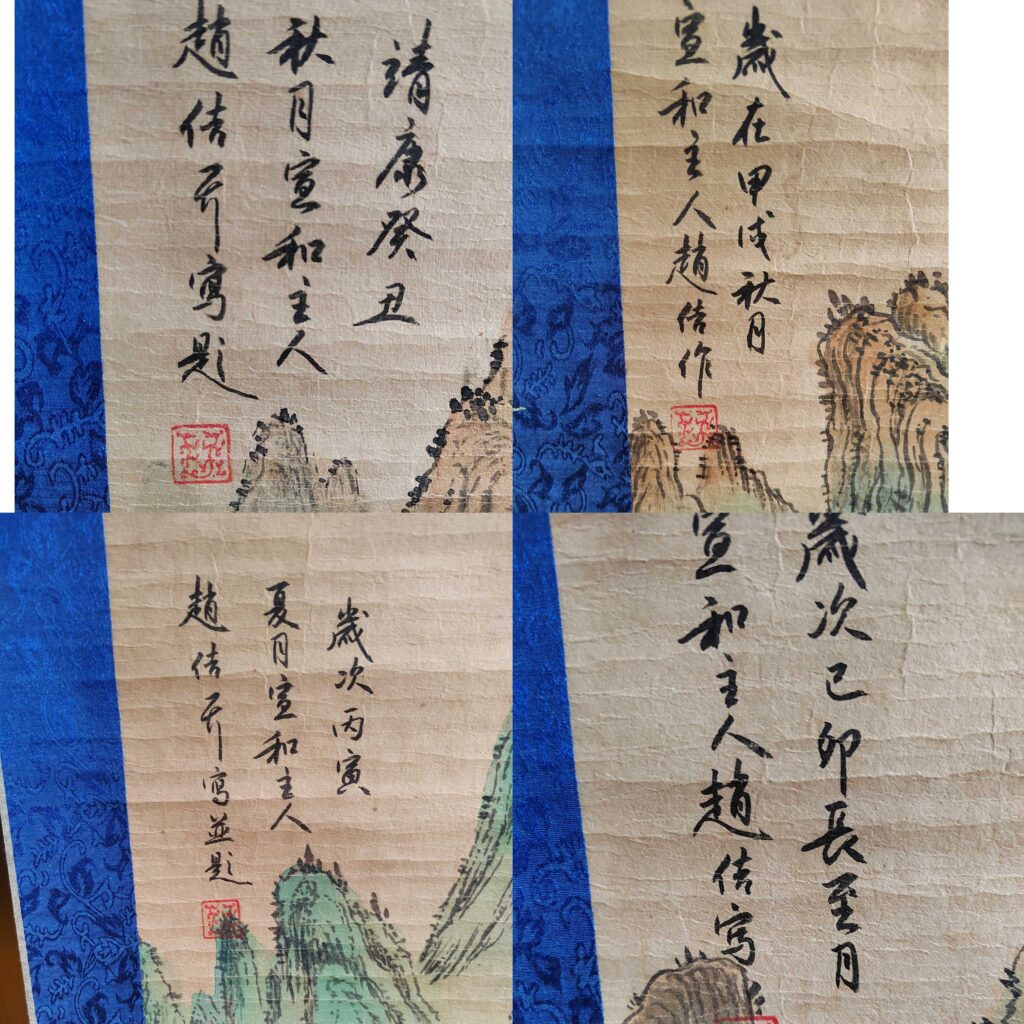 靖康癸丑
秋月宣和主人
趙佶寫題
歲在甲戌秋月
宣和主人趙佶作
歲次丙寅
夏月宣和主人
趙佶寫並題
歲次己卯長至月
宣和主人趙佶寫